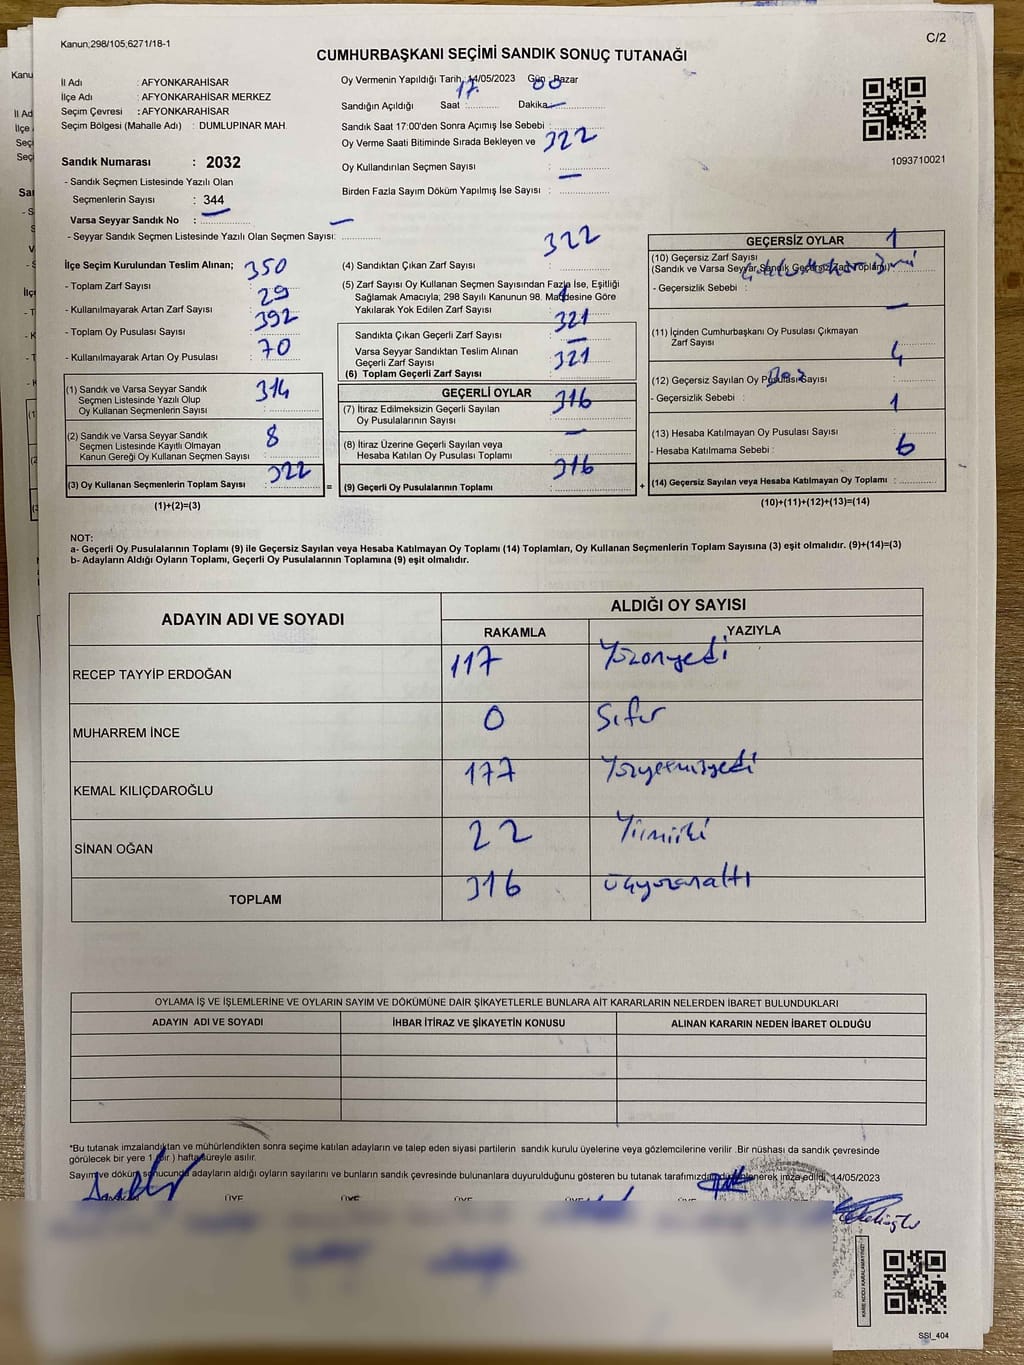 Kanun;298/105;6271/18-1
C/2
CUMHURBAŞKANI SEÇİMİ SANDIK SONUÇ TUTANAĞI
İl Adı : AFYONKARAHİSAR
İlçe Adı : AFYONKARAHİSAR MERKEZ
Seçim Çevresi : AFYONKARAHİSAR
Seçim Bölgesi (Mahalle Adı) : DUMLUPINAR MAH.
Sandık Numarası : 2032
- Sandık Seçmen Listesinde Yazılı Olan
Seçmenlerin Sayısı : 344
Varsa Seyyar Sandık No : —
- Seyyar Sandık Seçmen Listesinde Yazılı Olan Seçmen Sayısı: —
Oy Vermenin Yapıldığı Tarih : 14/05/2023 Gün : Pazar
Sandığın Açıldığı Saat : 17 Dakika : 00
Sandık Saat 17:00'den Sonra Açımış İse Sebebi : —
Oy Verme Saati Bitiminde Sırada Bekleyen ve
Oy Kullandırılan Seçmen Sayısı : 322
Birden Fazla Sayım Döküm Yapılmış İse Sayısı : —
1093710021
İlçe Seçim Kurulundan Teslim Alınan;
- Toplam Zarf Sayısı : 350
- Kullanılmayarak Artan Zarf Sayısı : 29
- Toplam Oy Pusulası Sayısı : 392
- Kullanılmayarak Artan Oy Pusulası : 70
(1) Sandık ve Varsa Seyyar Sandık
Seçmen Listesinde Yazılı Olup
Oy Kullanan Seçmenlerin Sayısı : 314
(2) Sandık ve Varsa Seyyar Sandık
Seçmen Listesinde Kayıtlı Olmayan
Kanun Gereği Oy Kullanan Seçmen Sayısı : 8
(3) Oy Kullanan Seçmenlerin Toplam Sayısı : 322
(1)+(2)=(3)
(4) Sandıktan Çıkan Zarf Sayısı : 322
(5) Zarf Sayısı Oy Kullanan Seçmen Sayısından Fazla İse, Eşitliği
Sağlamak Amacıyla; 298 Sayılı Kanunun 98. Maddesine Göre
Yakılarak Yok Edilen Zarf Sayısı :
Sandıkta Çıkan Geçerli Zarf Sayısı : 321
Varsa Seyyar Sandıktan Teslim Alınan
Geçerli Zarf Sayısı : —
(6) Toplam Geçerli Zarf Sayısı : 321
GEÇERLİ OYLAR
(7) İtiraz Edilmeksizin Geçerli Sayılan
Oy Pusulalarının Sayısı : 316
(8) İtiraz Üzerine Geçerli Sayılan veya
Hesaba Katılan Oy Pusulası Toplamı : —
(9) Geçerli Oy Pusulalarının Toplamı : 316
GEÇERSİZ OYLAR
(10) Geçersiz Zarf Sayısı 1
(Sandık ve Varsa Seyyar Sandık Geçersiz Zarf Toplamı)
- Geçersizlik Sebebi :
(11) İçinden Cumhurbaşkanı Oy Pusulası Çıkmayan
Zarf Sayısı : —
(12) Geçersiz Sayılan Oy Pusulası Sayısı : 4
- Geçersizlik Sebebi :
(13) Hesaba Katılmayan Oy Pusulası Sayısı : 1
- Hesaba Katılmama Sebebi :
(14) Geçersiz Sayılan veya Hesaba Katılmayan Oy Toplamı : 6
(10)+(11)+(12)+(13)=(14)
NOT:
a- Geçerli Oy Pusulalarının Toplamı (9) ile Geçersiz Sayılan veya Hesaba Katılmayan Oy Toplamı (14) Toplamları, Oy Kullanan Seçmenlerin Toplam Sayısına (3) eşit olmalıdır. (9)+(14)=(3)
b- Adayların Aldığı Oyların Toplamı, Geçerli Oy Pusulalarının Toplamına (9) eşit olmalıdır.
ADAYIN ADI VE SOYADI ALDIĞI OY SAYISI
RAKAMLA YAZIYLA
RECEP TAYYİP ERDOĞAN 117 Yüzonyedi
MUHARREM İNCE 0 Sıfır
KEMAL KILIÇDAROĞLU 177 Yüzyetmişyedi
SİNAN OĞAN 22 Yirmiiki
TOPLAM 316 üçyüzonaltı
OYLAMA İŞ VE İŞLEMLERİNE VE OYLARIN SAYIM VE DÖKÜMÜNE DAİR ŞİKAYETLERLE BUNLARA AİT KARARLARIN NELERDEN İBARET BULUNDUKLARI
ADAYIN ADI VE SOYADI İHBAR İTİRAZ VE ŞİKAYETİN KONUSU ALINAN KARARIN NEDEN İBARET OLDUĞU
*Bu tutanak imzalandıktan ve mühürlendikten sonra seçime katılan adayların ve talep eden siyasi partilerin sandık kurulu üyelerine veya gözlemcilerine verilir .Bir nüshası da sandık çevresinde
görülecek bir yere 1 (bir ) hafta süreyle asılır.
Sayım ve döküm sonucunda adayların aldığı oyların sayılarını ve bunların sandık çevresinde bulunanlara duyurulduğunu gösteren bu tutanak tarafımızdan düzenlenerek imza edildi. 14/05/2023
ÜYE ÜYE ÜYE ÜYE ÜYE
KARE KODU KARALAMAYINIZ!
SSI_404